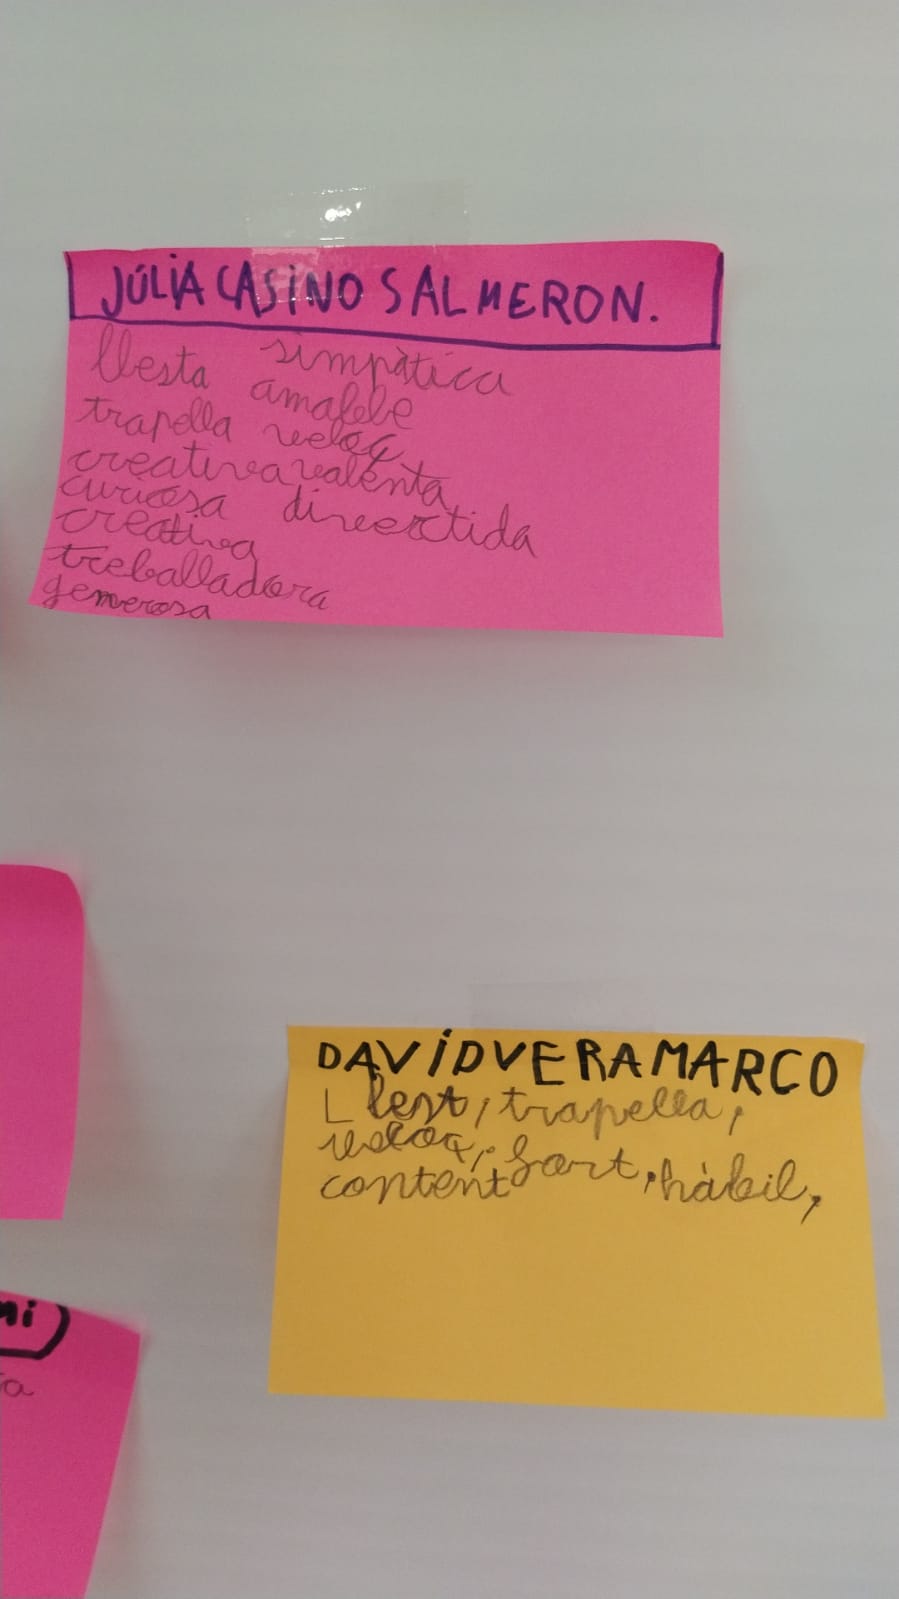 JÚLIA CASINO SALMERON.
llesta simpàtica
trapella amable
creativa veloç
curiosa valenta
creativa divertida
treballadora
generosa
DAVID VERA MARCO
Llest, trapella,
veloç, fort, hàbil,
content
mi
ia